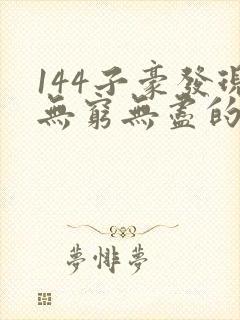 144子豪發現
無窮無盡的
夢悱夢